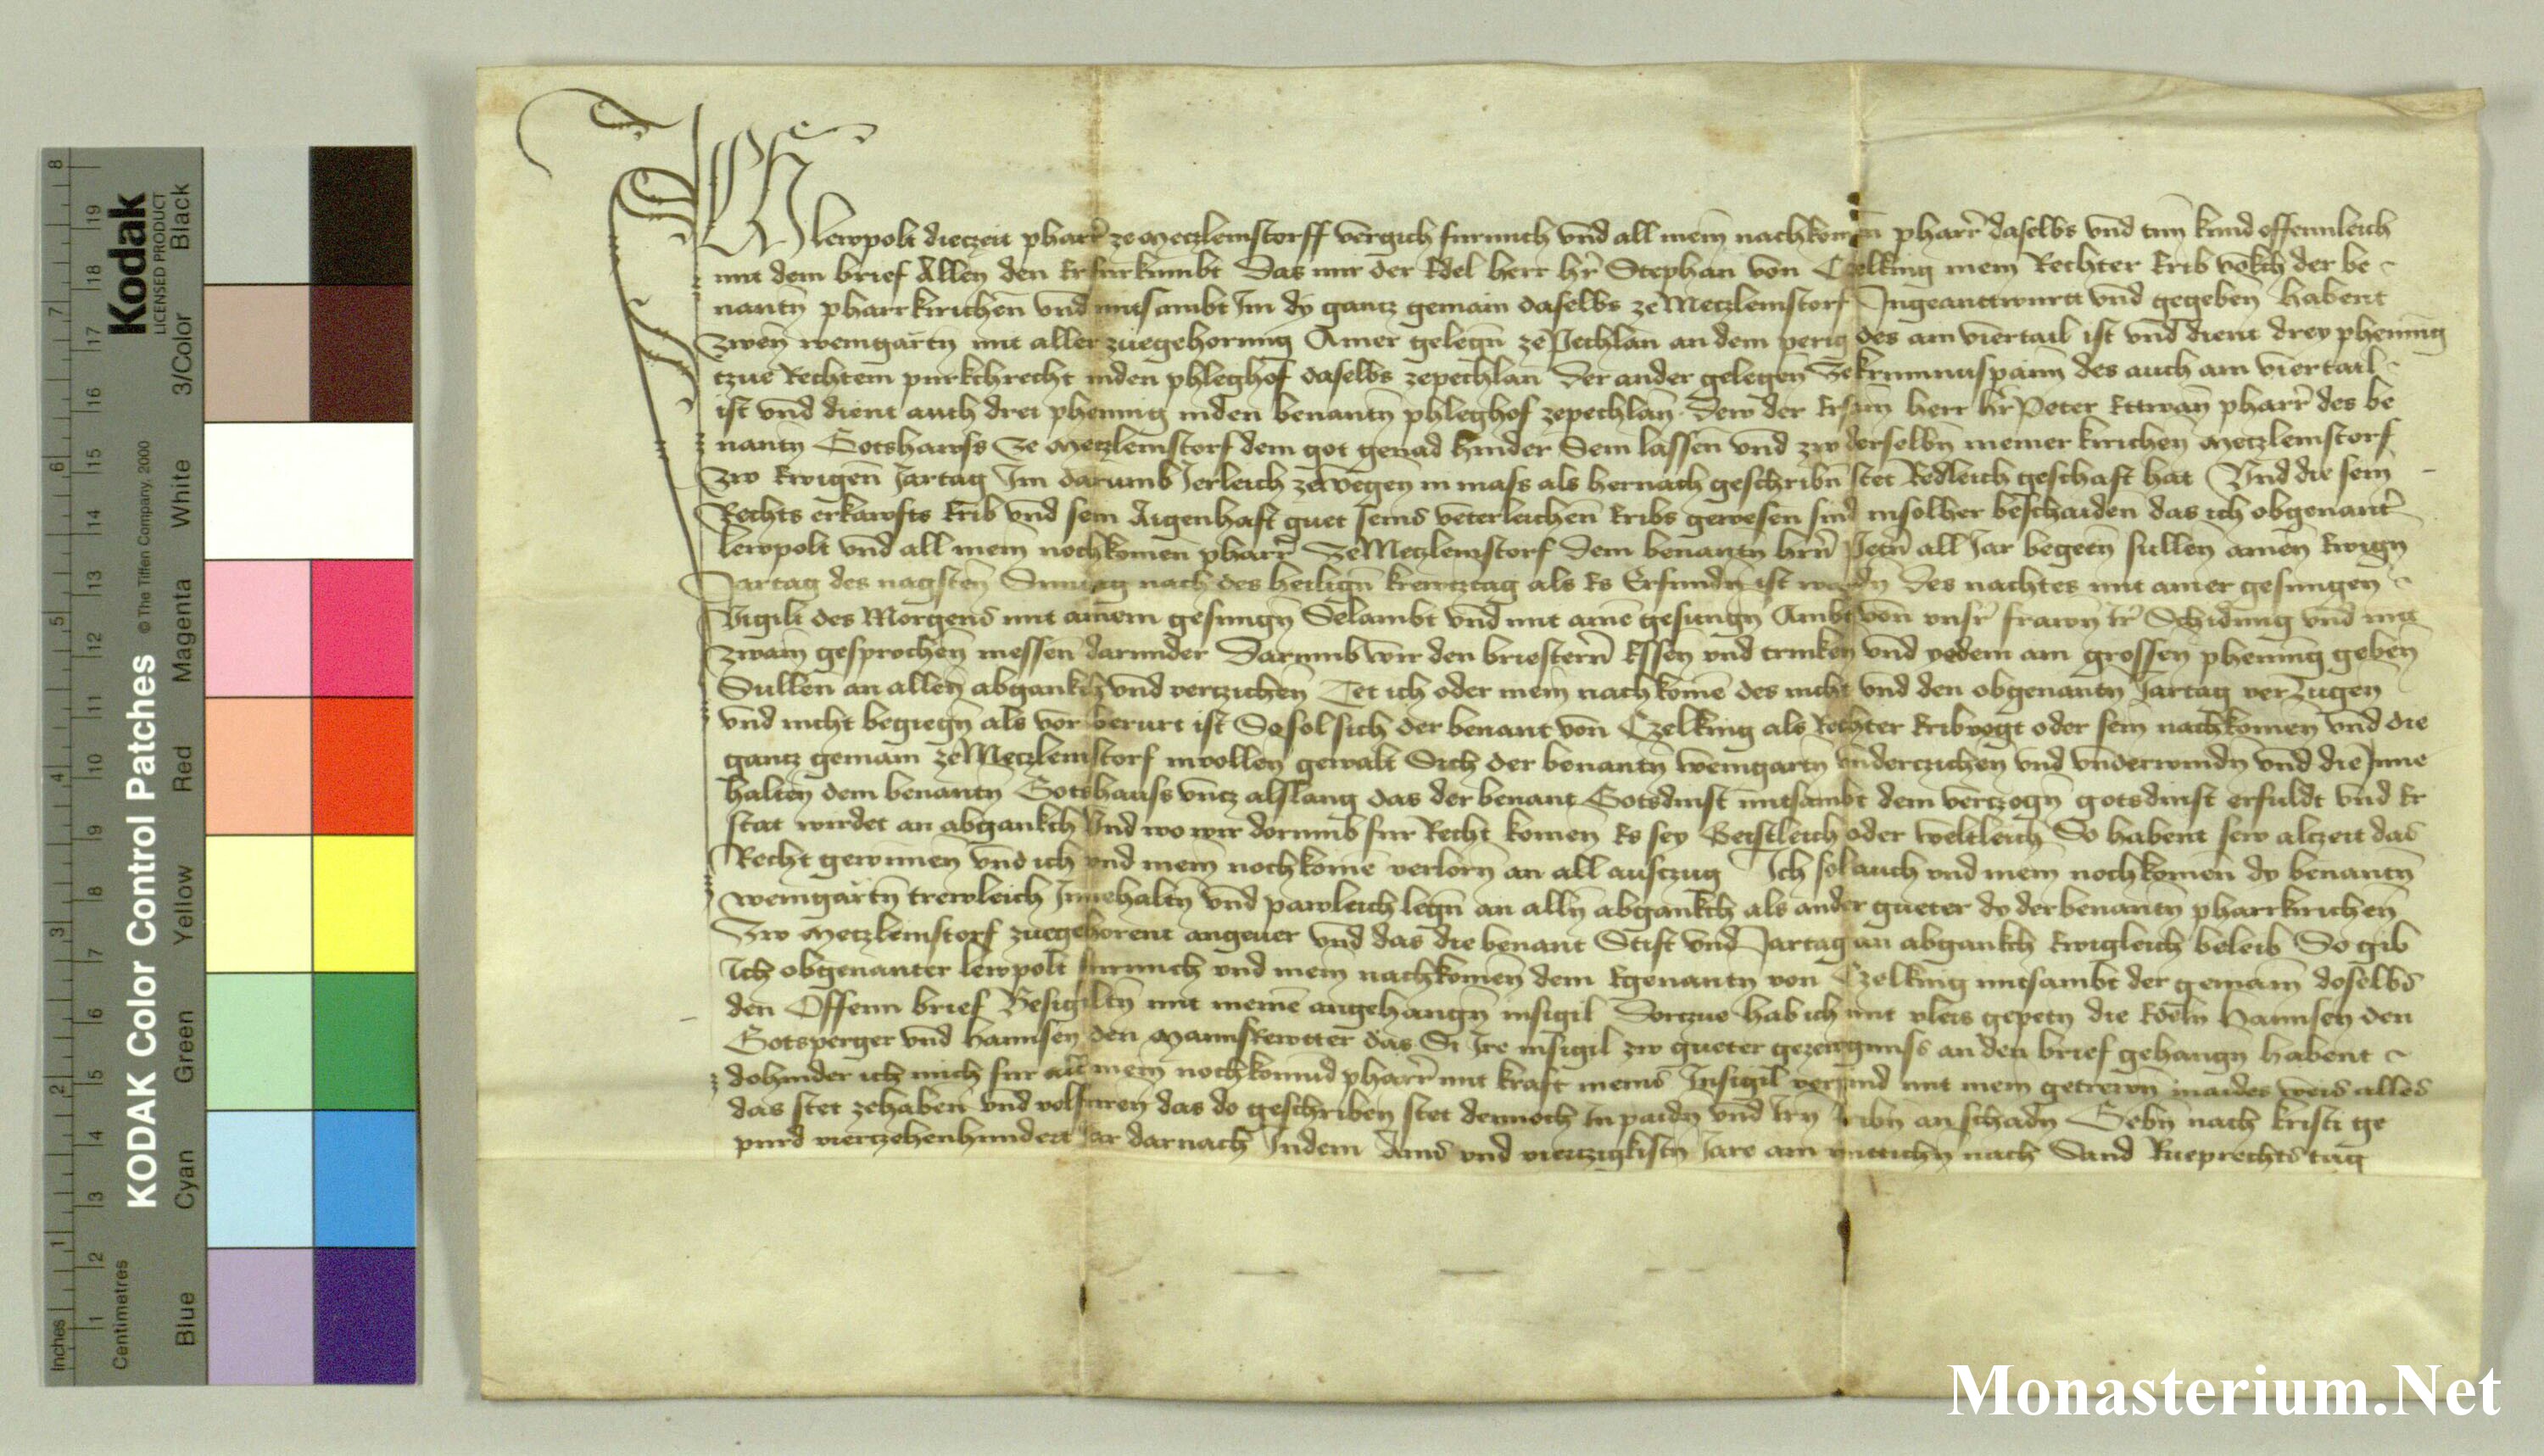 Ich Lewpolt dieczeit pharrer ze Meczleinstorff vergich fur mich vnd all mein nachkomen pharrer daselbs vnd tun kund offennleich
mit dem brief Allen den er furkumbt Das mir der Edel herr her Stephan von Czelking mein Rechter Erib vokch der be
nantn pharrkirichen vnd mitsambt Im dy gancz gemain daselbs ze Meczleinstorf Ingeanttwurtt vnd gegeben habent
zwen weingartn mit aller zuegehorung Ainer gelegn ze Pechlan an dem perig des ain viertail ist vnd dient drey phening
czue Rechtem purkchrecht in den phleghof daselbs ze pechlan Der ander gelegen ze des auch ain viertail
ist vnd dient auch drei phennig in den benantn phleghof ze pechlan Dew der Ersam herr her Peter Ettwan pharrer des be
nantn Gotshawss ze Meczleinstorf dem got genad hinder Sein lassen vnd zw derselbn meiner kirichen Meczleinstorf
zw Ewigen Jartag Im darumb Jerleich ze wegen in mass als hernach geschribn stet Redleich geschaft hat Vnd die sein
Rechts erkawfts Erib vnd sein Aigenhaft guet seins veterleichen Eribs gewesen sind in solher beschaiden das ich obgenanter
Lewpolt vnd all mein nochkomen pharrer ze Meczleinstorf dem benantn hern Petern all Jar begeen sullen ainen Ewign
Jartag des nagsten Suntag nach des heilign krewcztag als Es Erfundn ist wordn des nachtes mit ainer gesungen
Vigili des Morgens mit ainem gesungn Selambt vnd mit aine gesungn Ambt von vnser frawn ir Schidung vnd mit
zwain gesprochen messen darunder Darumb wir den briestern Essen vnd trinken vnd yedem ain grossen phening geben
Sullen an allen abgankch vnd verczichen Tet ich oder mein nachkome des nicht vnd den obgenantn Jartag verzugen
vnd nicht begiegn als vor berurt ist So sol sich der benant von Czelking als Rechter Eribvogt oder sein nachkomen vnd die
gancz gemain ze Meczleinstorf in vollen gewalt Sich der benantn weingartn vnderczichen vnd vnderwindn vnd die Inne
halten dem benantn Gotshauss vncz als lang das der benant Gotsdinst mitsambt dem verczogn gotsdinst erfuldt vnd Er
stat wirdet an abgankch Vnd wo wir dorumb fur Recht komen Es sey Geistleich oder weltleich So habent sew alczeit das
Recht gewinnen vnd ich vnd mein nochkome verlorn an all auszug Ich sol auch vnd mein nochkomen dy benantn
weingartn trewleich Innehaltn vnd pawleich legn an alln abgankch als ander gueter do der benantn pharrkirichen
zw Meczleinstorf zuegehorent angeuer vnd das die benant Stift vnd Jartag an abgankch Ewigleich beleib So gib
Ich obgenanter Lewpolt fur mich vnd mein nachkomen dem Egenantn von Czelking mitsambt der gemain doselbs
den Offenn brief Besigiltn mit meine angehangn insigil Dorczue hab ich mit vleis gepetn die Edeln Hannsen den
Gotsperger vnd Hannsen den das Si Ire insigil zw gueter gezewgnuss an den brief gehangn habent
dohinder ich mich fur all mein nochkomund pharrer mit kraft meins Insigil verpind mit mein getrewn in aides weis alles
das stet zehaben vnd volfuren das do geschriben stet dennoch In paidn vnd Irn Eribn an schadn Gebn nach kristi ge
purd vierczehenhundert Jar darnach Indem Ains vnd vierczigkistn Jare am mittichn nach Sand Rueprechts tag
Monasterium.Net
KODAK Color Control Patches
© The Tiffen Company, 2000
Kodak
LICENSED PRODUCT
Inches
1
2
3
4
5
6
7
8
Centimetres
1
2
3
4
5
6
7
8
9
10
11
12
13
14
15
16
17
18
19
Blue
Cyan
Green
Yellow
Red
Magenta
White
3/Color
Black